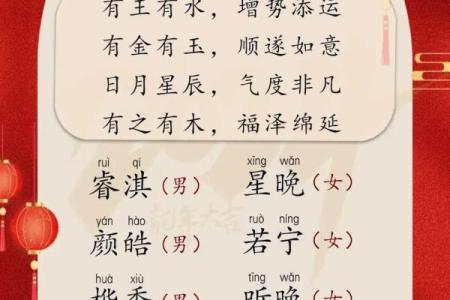 有王有水，增势添运
有金有玉，顺遂如意
日月星辰，气度非凡
有之有木，福泽绵延
ruì qí xīng wǎn
睿淇（男） 星晚（女）
yán hào ruò níng
颜皓（男） 若宁（女）
huà xiù tīng wǎn
桦秀（男） 听晚（女）